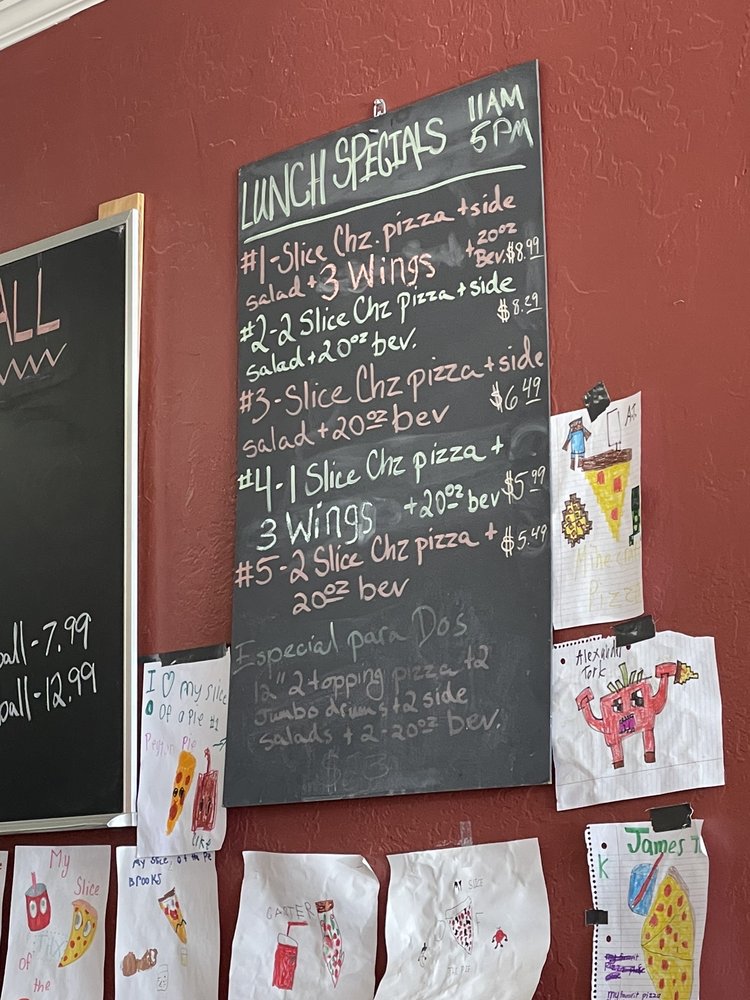 LUNCH SPECIALS 11AM
5PM
#1-Slice Chz. pizza + side
salad + 3 Wings + 20oz Bev. $8.99
#2-2 Slice Chz pizza + side
salad + 20oz bev. $8.29
#3-Slice Chz pizza + side
salad + 20oz bev $6.49
#4-1 Slice Chz pizza +
3 Wings + 20oz bev $5.99
#5-2 Slice Chz pizza +
20oz bev $5.49
Especial para Dos
12" 2 topping pizza + 2
Jumbo drums + 2 side
salads + 2-20oz bev.
ALL
ball-7.99
ball-12.99
I ♡ my slice
of a Pie #1
Peyton Pie
Alexander
Tork
My
Slice
of
the
My Slice, of the Pie
Brooks
CARTER
K James T
my favorit pizza